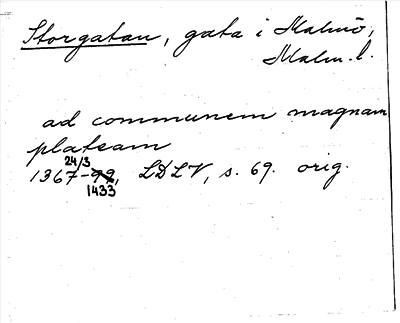 Storgatan, gata i Malmö,
Malm. l.
ad communem magnam
plateam
24/3
1367-92, LDLV, s. 69. orig.
1433